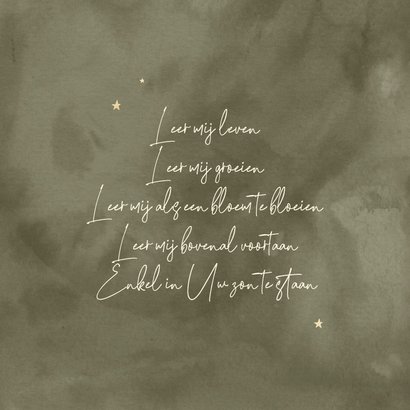 Leer mij leven
Leer mij groeien
Leer mij als een bloem te bloeien
Leer mij bovenal voortaan
Enkel in Uw zon te staan